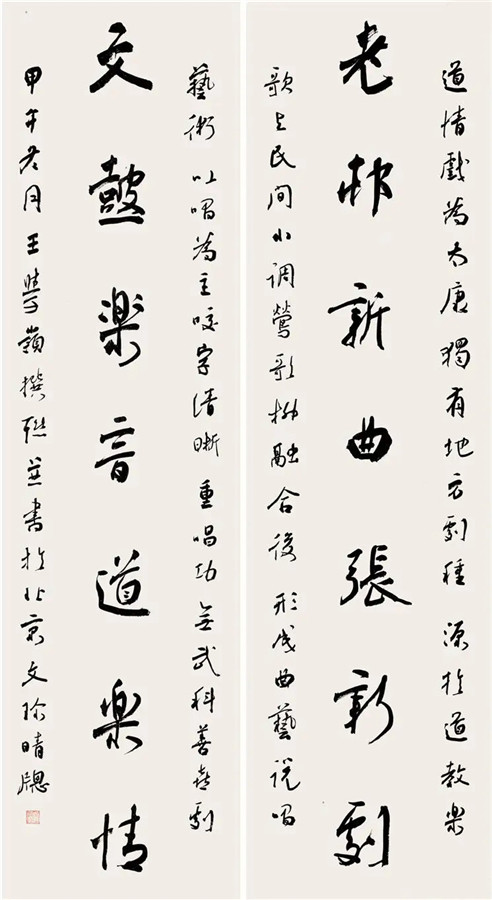 道情戲為太康獨有地方劇種源於道教樂
老新曲張新劇
歌與民間小調鶯歌柳融合後形成曲藝說唱
藝術以唱為主咬字清晰重唱功無武科善喜劇
文鼓楽音道樂情
甲午冬月王學嶺撰聯並書於北京文晴牕